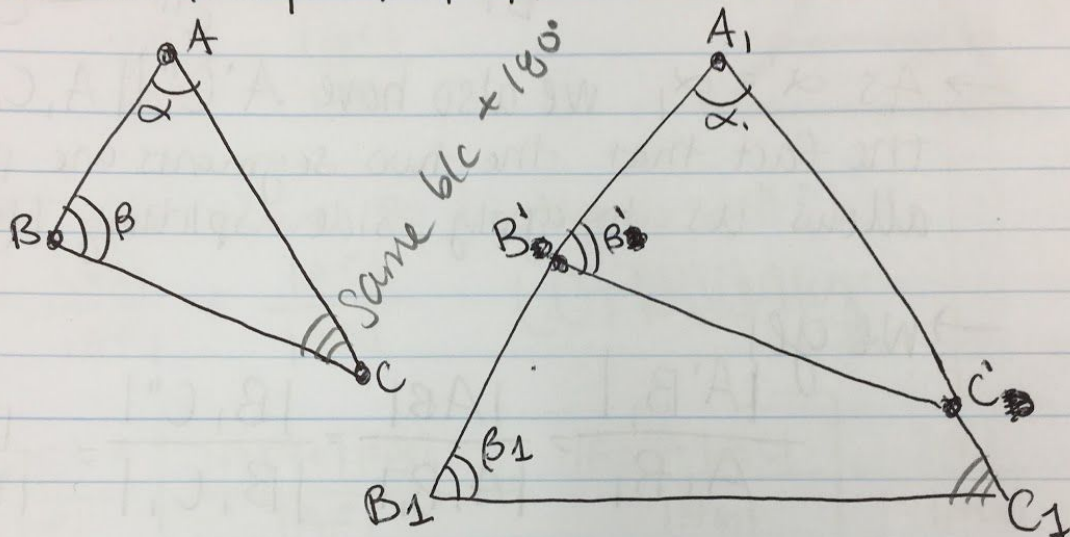 A
α
B
β
C
Same b/c × 180.
A₁
α₁
B'
β'
C'
B1
β1
C1